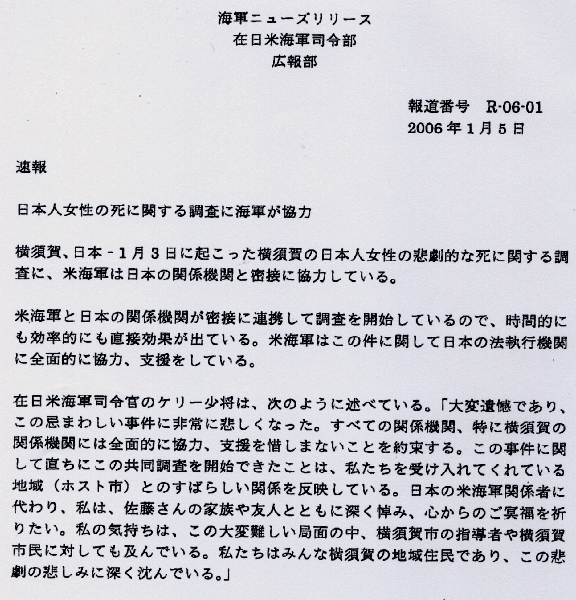 海軍ニューズリリース
在日米海軍司令部
広報部
報道番号　R-06-01
2006年1月5日
速報
日本人女性の死に関する調査に海軍が協力
横須賀、日本 - 1月3日に起こった横須賀の日本人女性の悲劇的な死に関する調
査に、米海軍は日本の関係機関と密接に協力している。
米海軍と日本の関係機関が密接に連携して調査を開始しているので、時間的に
も効率的にも直接効果が出ている。米海軍はこの件に関して日本の法執行機関
に全面的に協力、支援をしている。
在日米海軍司令官のケリー少将は、次のように述べている。「大変遺憾であり、
この忌まわしい事件に非常に悲しくなった。すべての関係機関、特に横須賀の
関係機関には全面的に協力、支援を惜しまないことを約束する。この事件に関
して直ちにこの共同調査を開始できたことは、私たちを受け入れてくれている
地域（ホスト市）とのすばらしい関係を反映している。日本の米海軍関係者に
代わり、私は、佐藤さんの家族や友人とともに深く悼み、心からのご冥福を祈
りたい。私の気持ちは、この大変難しい局面の中、横須賀市の指導者や横須賀
市民に対しても及んでいる。私たちはみんな横須賀の地域住民であり、この悲
劇の悲しみに深く沈んでいる。」